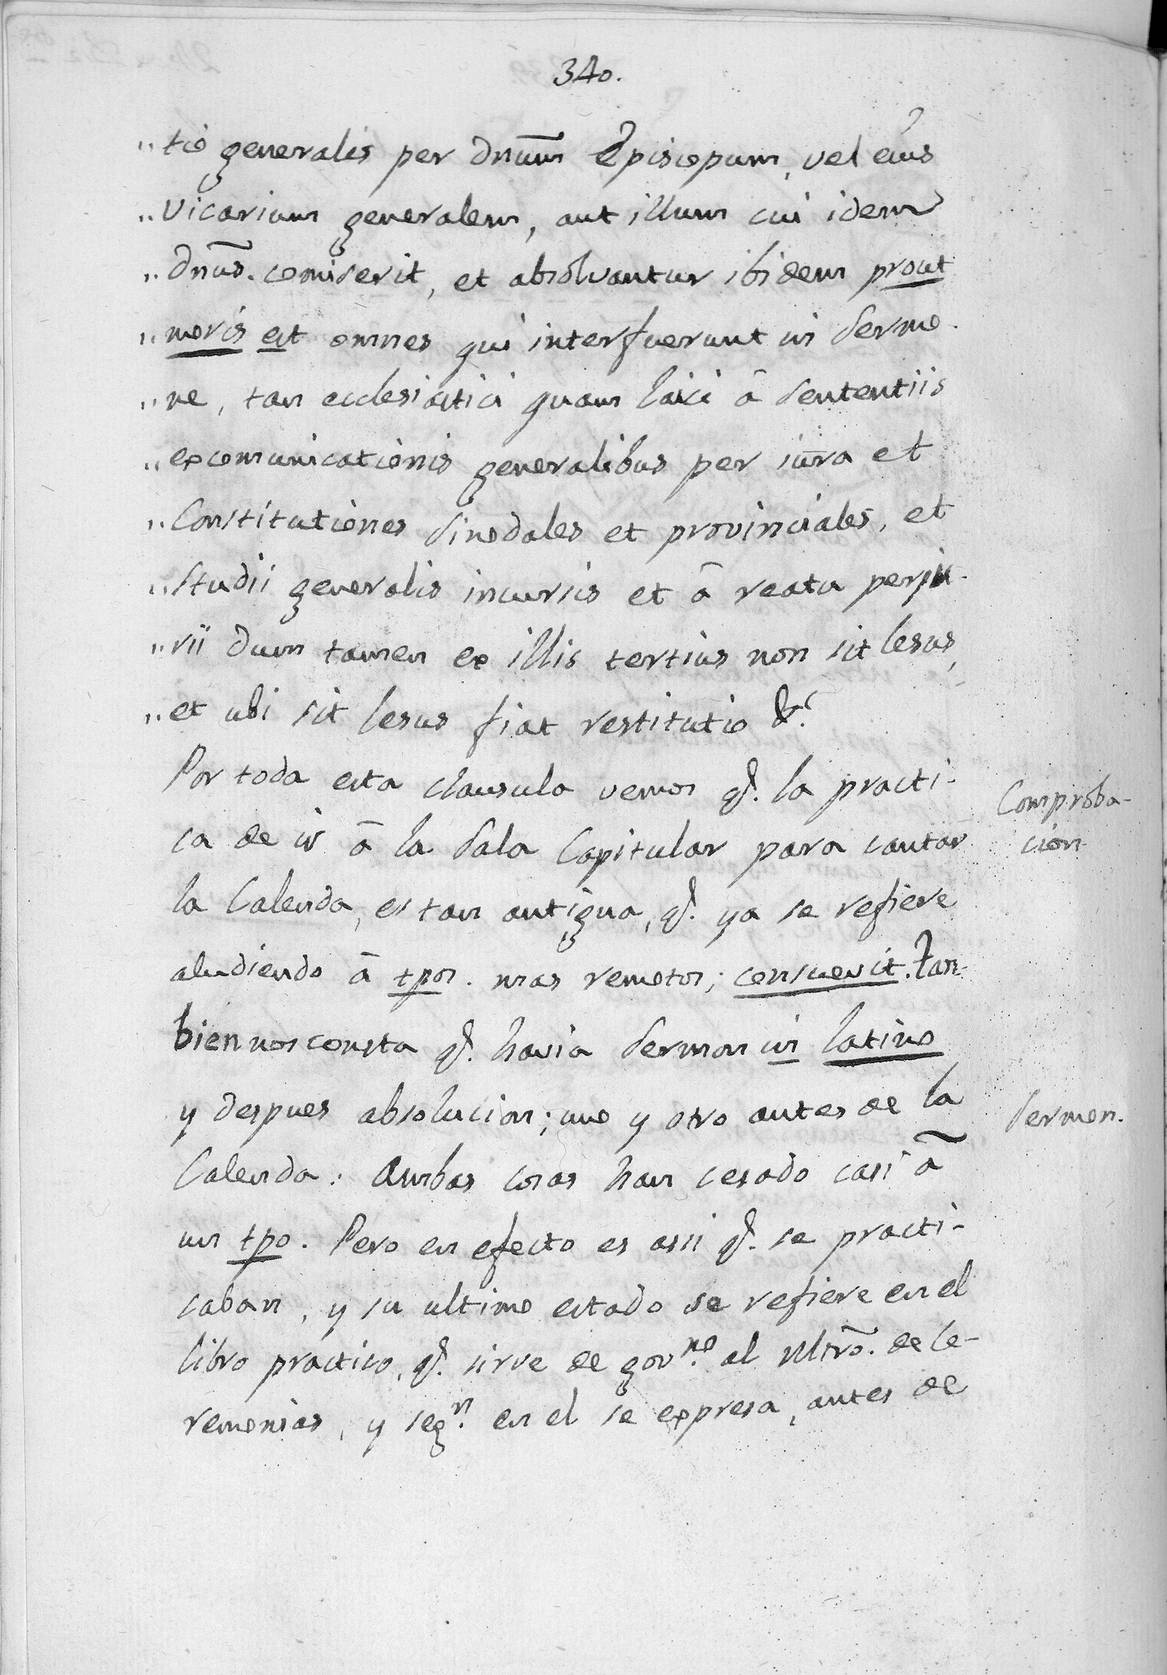 340.
"tio generalis per Dnūm Episcopum, vel eius
"Vicarium generalem, aut illum cui idem
"Dnūs. comiserit, et absolvantur ibidem prout
"moris est omnes qui interfuerunt in sermo-
"ne, tan ecclesiastici quam laici â sententiis
"excomunicationis generalibus per iura et
"Constitutiones sinodales et provinciales, et
"studii generalis incursis et â reatu perju-
"rii dum tamen ex illis tertius non sit lesus,
"et ubi sit lesus fiat restitutio &c.
Por toda esta clausula vemos q.ᵉ la practi-
ca de ir â la Sala Capitular para cantar
la Calenda, es tan antigua, q.ᵉ ya se refiere
aludiendo â tpos. mas remotos; consuevit. Tan-
bien nos consta q.ᵉ havia Sermon in latino
y despues absolucion; uno y otro antes de la
Calenda: Ambas cosas han cesado casi â
un tpo. Pero en efecto es asii q.ᵉ se practi-
caban, y su ultimo estado se refiere en el
libro practico, q.ᵉ sirve de gov.ⁿᵒ al Mtrō. de Ce-
remonias, y seg.ⁿ en el se expresa, antes de
Comproba-
cion
Sermon.